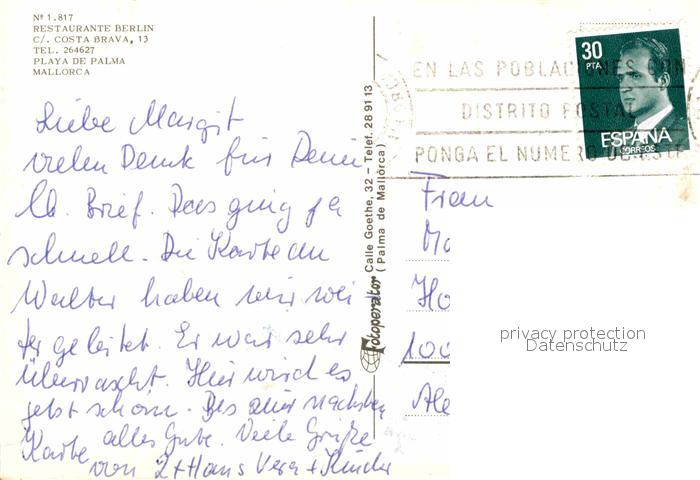 Nº 1.817
RESTAURANTE BERLIN
C/. COSTA BRAVA, 13
TEL. 264627
PLAYA DE PALMA
MALLORCA
Liebe Margit
vielen Dank für Deinen
lb. Brief. Das ging ja
schnell. Die Karte an
Walter haben wir wei-
tergeleitet. Er war sehr
überrascht. Hier wird es
jetzt schön. Bis zur nächsten
Karte alles Gute. Viele Grüße
von + Hans Vera + Kinder
Fotoperator Calle Goethe, 32 - Telef. 28 91 13
(Palma de Mallorca)
30
PTA
ESPAÑA
CORREOS
EN LAS POBLACIONES CON
DISTRITO POSTAL
PONGA EL NUMERO DE ESTE
Frau
Ho
100
privacy protection
Datenschutz